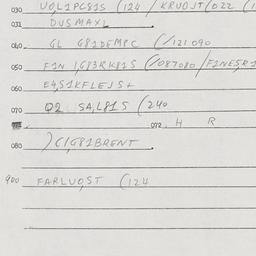 030 UOL1PC81S (124 / KRUOJT(022 (1
031 DUSMAXL
040 GL G81DEMPC (/121090
050 F1N 1,G83RK81S (/087080/F1NES,R1
060 E4,S1KFLEJS+
070 Q2 SA,L81S (240
072 H R
080 )C1,G81BRENT
900 FARLUO,ST (124